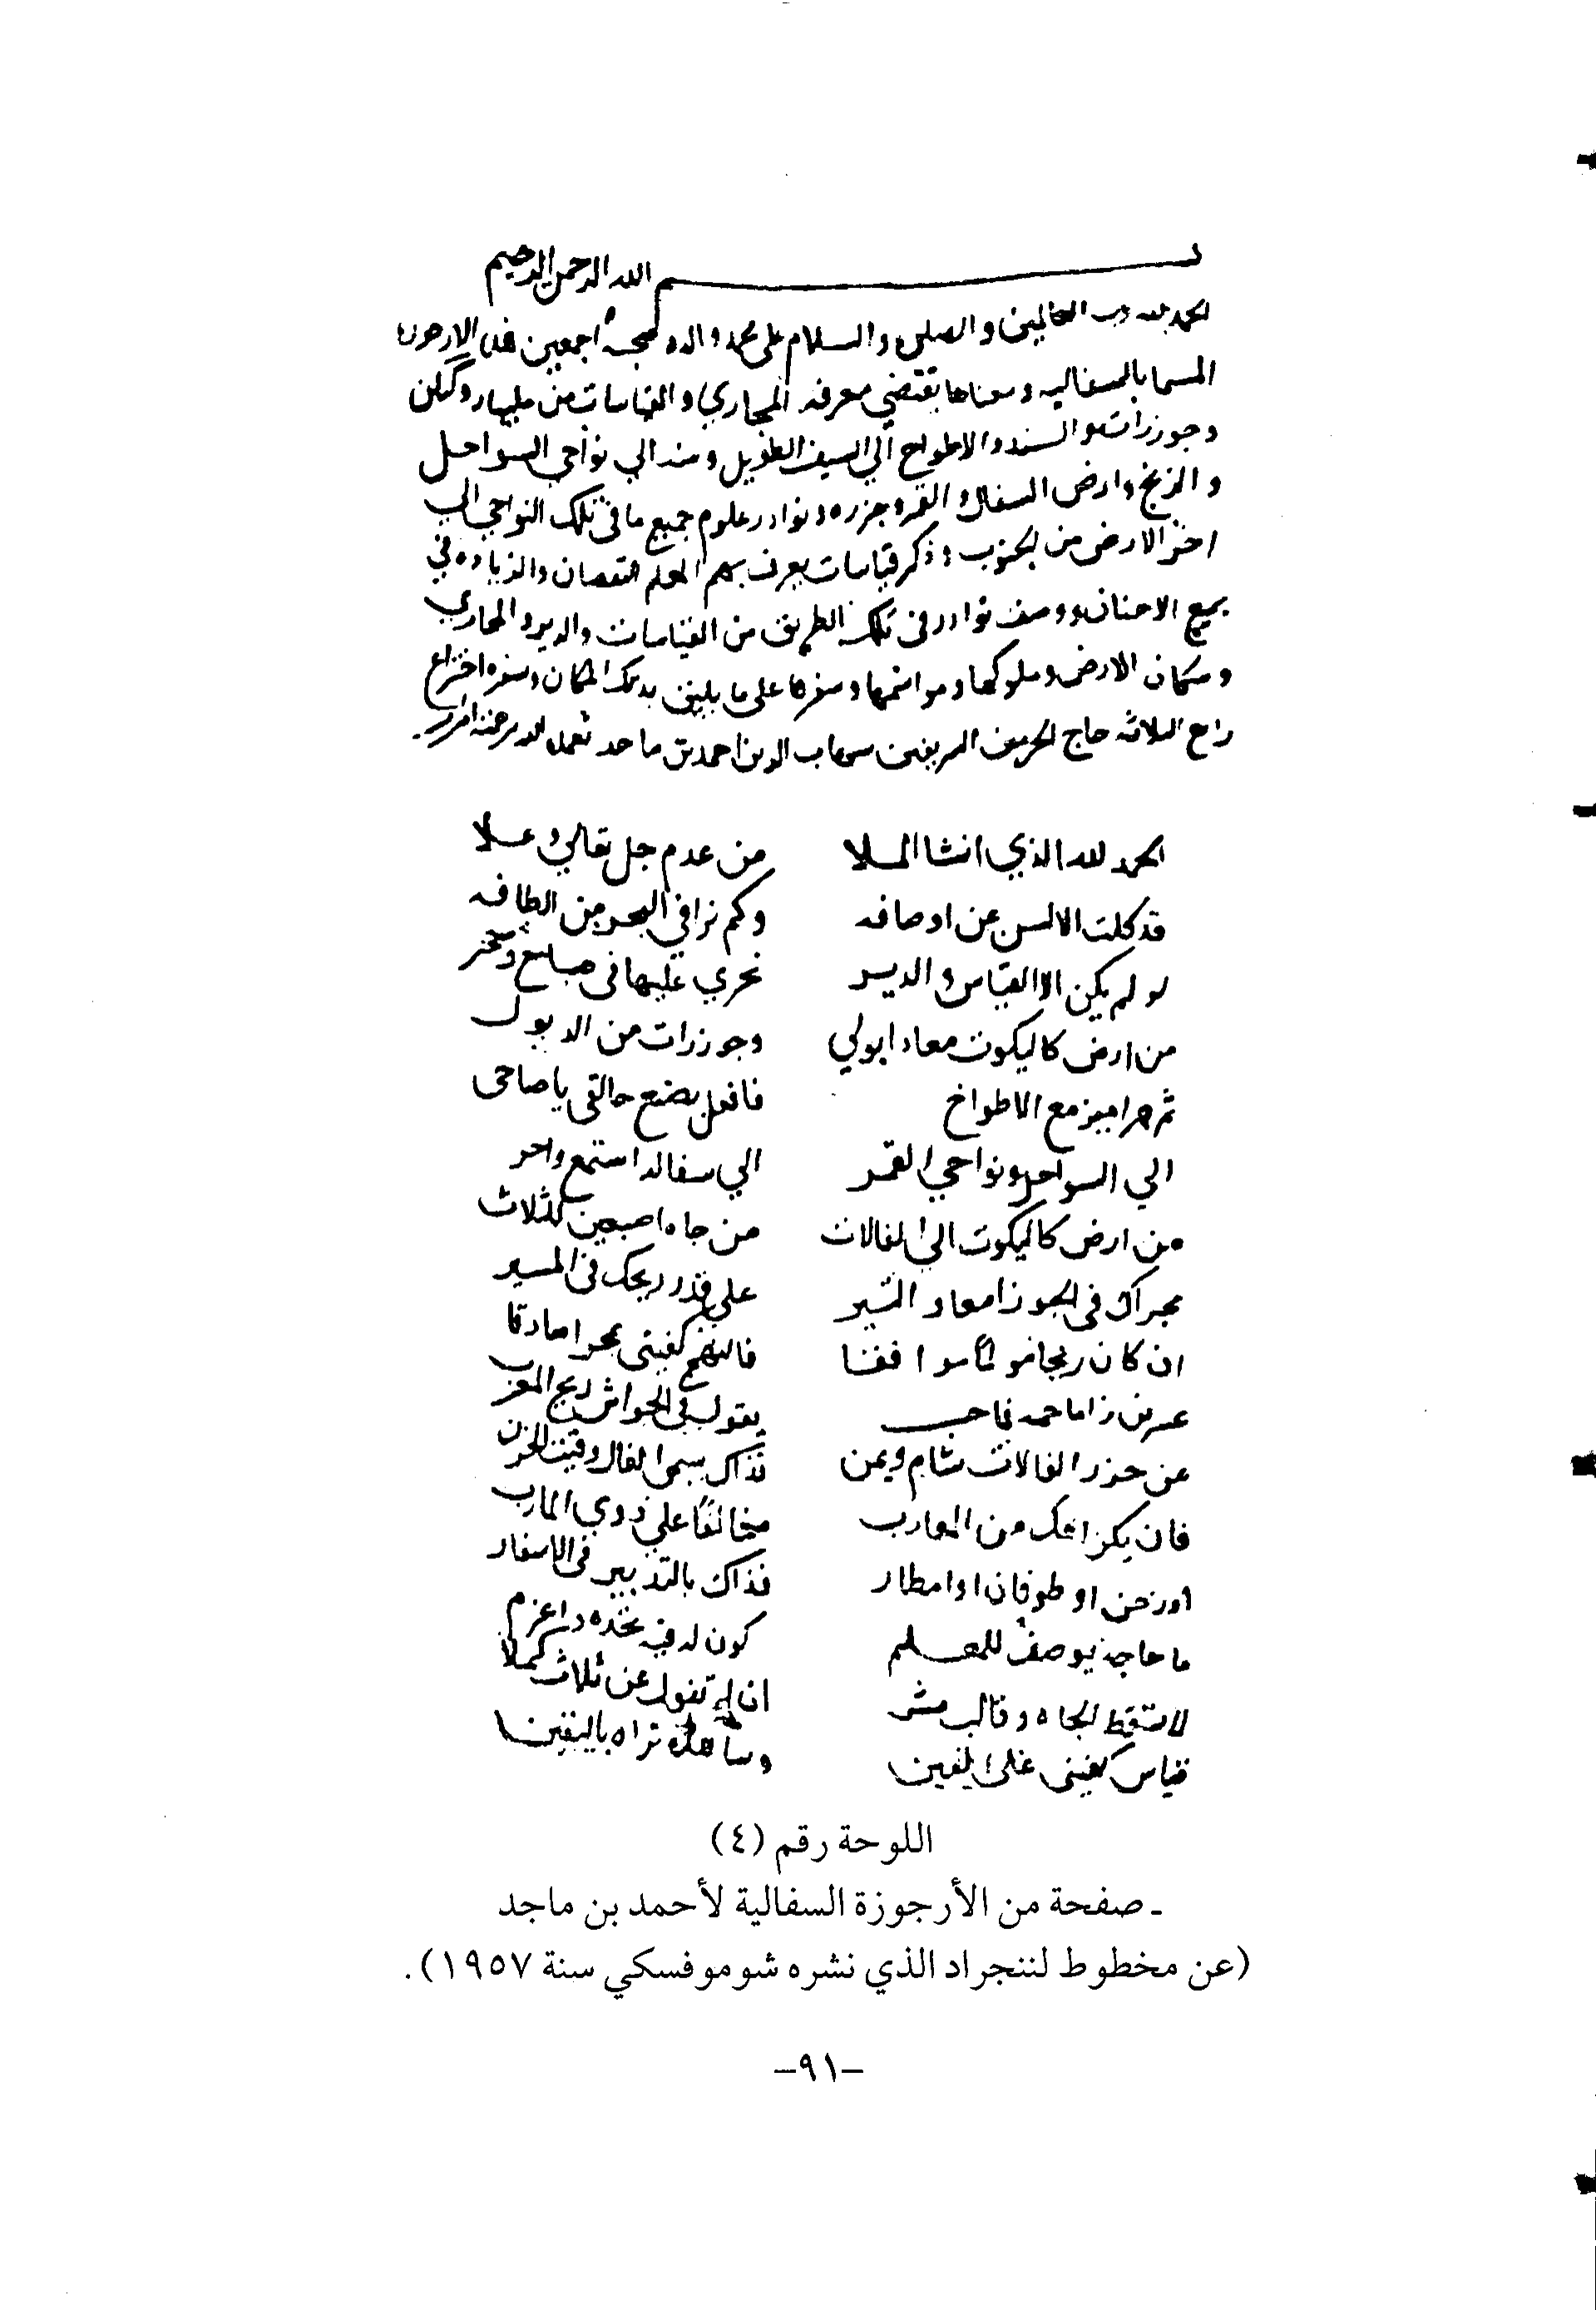 بسم الله الرحمن الرحيم
الحمد لله رب العالمين والصلى والسلام على محمد واله وصحبه اجمعين هذه الارجوزة
المسما بالسفاليه ومعناها يقتضي معرفه المجاري والقياسات من مليبار وكنكن
وجوزرات والسند والاطواح الي السيف الطويل ومنه الي نواحي السواحل
والزنج وارض السفال والقمر وجزره ونوادر علوم جميع ما في تلك النواحي الي
اخر الارض من الجنوب وذكر قياسات يعرف بهم المعلم النقصان والزياده في
جميع الاخنان ووصف نوادر في تلك الطريق من القياسات والديرو المجاري
وسكان الارض وملوكها ومواسمها وسفرها على ما يليق بذلك المكان وسفره اختراع
رابع الثلاثه حاج الحرمين الشريفين شهاب الدين احمد بن ماجد تغمد الله برحمته
الحمد لله الذي انشا الملا من عدم جل تعالي وعلا
قد كلت الالسن عن اوصافه وكم نرا في البحر من الطافه
لو لم يكن الا القياس والدير نجري عليها في صباح وسحر
من ارض كاليكوت معاد ابولي وجوزرات من الديول
ثم هراميز مع الاطواخ فافعل بصنع حالتي يا صاحى
الي السواحل ونواحي القمر الي سفاله استمع واحر
من ارض كاليكوت الي الفالات من جاه اصبعين للثلاث
مجراك في الجوزا معاد التير علي قدر ريحك في المسير
ان كان ريحا موافقا فالنهم كفيتى مجرا صادقا
يقول في الحواش ريح المغرب
عن جزر الفالات شام ويمن فذاك يسمى الفال وقيت الحزن
فان يكن من المعارب مخالفا علي ذوي المارب
اوزحن او طوفان او امطار فذاك بالتدبير في الاسفار
ما حاجة يوصف للمعلم كون لديه نخده واعزم
لا تقط الجاه وقالب ان لم تقول عن ثلاث كملا
قياس كفيني على يقين وساهده تراه باليقين
اللوحة رقم (٤)
ـ صفحة من الأرجوزة السفالية لأحمد بن ماجد
(عن مخطوط لننجراد الذي نشره شوموفسكي سنة ١٩٥٧).
–٩١–